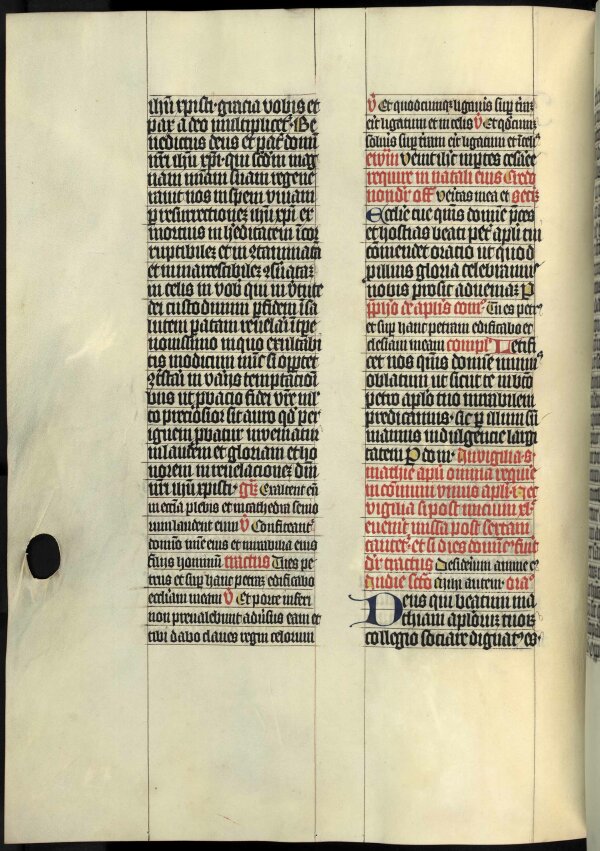 ihu xpisti · gracia vobis et
pax a deo multiplicet᷑ · Be
nedictus deus et pat̃ domi
nr̃i ihũ xp̃i · qui scd̃m mag
nam mĩam suam regene
rauit nos in spem viuam
p resurrectionez ihũ xp̃i ex
mortuis in heditatem ĩcor
ruptibilez et in ꝯtaminatã
et inmarcescibilez ꝯseruataz
in celis in vob qui in ṽtute
dei custodimini p fidem ĩ sa
lutem paratam reuelari ĩ tpe
nouissimo in quo exultabi
tis modicum nũc si opp̃tet
ꝯtristari in varijs temptacion
bus ut pbacio fidei vr̃e ml̃
to preciosior sit auro qd̃ per
ignem pbatur inveniatur
in laudem et gloriam et ho
norem in reuelacionez dñi
nr̃i ihũ xpisti · gr̃ Exaltent eũ
in ecc̃ia plebis et in cathedra senio
rum laudent eum ℣ Confiteant᷑
domĩo mĩe eius et mirabilia eius
filijs hominũ tractus Tu es pe
trus et sup hanc petraz edificabo
eccl̃iam meam ℣ Et porte inferi
non preualebunt aduersus eam et
tibi dabo claues regni celorum
℣ Et quodcumqz ligaueris sup tr̃az
erit ligatum et in celis ℣ Et qd̃cumqz
solueris sup terram erit ligatum et ĩ cel̃
ewm̃ venit ihc̃ in ptes cesaree
require in natali eius Secq̃
nondr̃ off̃ veritas mea et Secr̃
Ecclesie tue qs̃ums domine p̃ces
et hostias beati pet̃ apl̃i tui
comendet oracio ut quod
p illius gloria celebramus
nobis prosit ad veniaz P
p̃fijo de apl̃is com̃ · Tu es petrꝰ
et sup hanc petram edificabo ec
clesiam meam compl̃ · Letifi
cet nos qs̃ums domine munꝰ
oblatum ut sicut te in bt̃o
petro apl̃o tuo mirabilem
predicamus · sic p illum sũ
mamus indulgencie largi
tatem P dom · In vigilia s·
mathie apl̃i omnia require
in comuni vnius apl̃i · Hec
vigilia si post inicium xl̃
euenit missa post sextam
cantet᷑ · et si dies domĩcꝰ fuit
dr̃ tractus Desiderium anime eꝰ
In die scõ Michi autem · orã
Deus qui beatum ma
thiam apl̃orum tuorz
collegio sociare dignatꝰ es ·